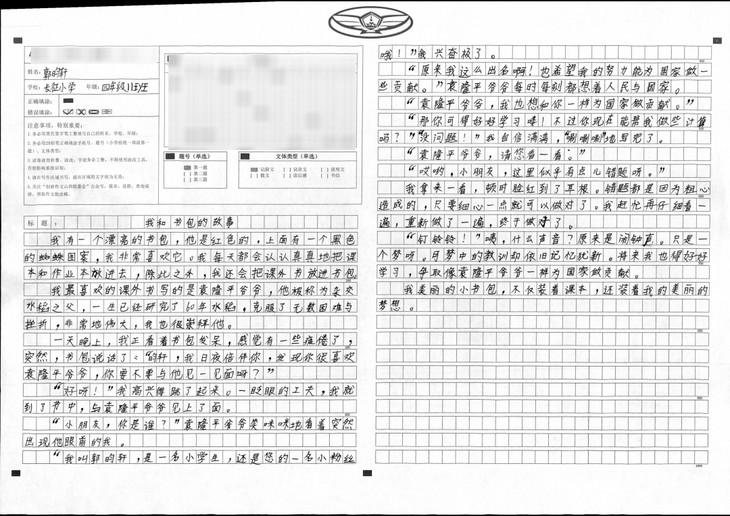 姓名：郭昀轩
学校：长征小学 年级：四年级11班
正确填涂：
错误填涂：
注意事项，特别重要：
题号（单选）
文体类型（单选）
第一题
第二题
第三题
记叙文
议论文
说明文
散文
读后感
书信
标题：
我和书包的故事
我有一个漂亮的书包，他是红色的，上面有一个黑色
的蜘蛛图案，我非常喜欢它。我每天都会认认真真地把课
本和作业本放进去，除此之外，我还会把课外书放进书包
我最喜欢的课外书写的是袁隆平爷爷，他被称为杂交
水稻之父，一生已经研究了60年水稻，克服了无数困难与
挫折，非常地伟大，我也很崇拜他。
一天晚上，我正看着书包发呆，感觉有一些疲倦了，
突然，书包说话了：“昀轩，我日夜陪伴你，发现你很喜欢
袁隆平爷爷，你要不要与他见一见面呀？”
“好呀！”我高兴得跳了起来。一眨眼的工夫，我就
到了书中，与袁隆平爷爷见上了面。
“小朋友，你是谁？”袁隆平爷爷笑咪咪地看着突然
出现他眼前的我。
“我叫郭昀轩，是一名小学生，还是您的一名小粉丝
哦！”我兴奋极了。
“原来我这么出名啊！也希望我的努力能为国家做一
些贡献。”袁隆平爷爷每时每刻都想着人民与国家。
“袁隆平爷爷，我也想和你一样为国家做贡献。”
“那你可得好好学习喽！不过你现在能帮我做些计算
吗？”“没问题！”我自信满满，“唰唰唰”地写完了。
“袁隆平爷爷，请您看一看。”
“哎哟，小朋友，这里似乎有点儿错题呀。”
我拿来一看，顿时脸红到了耳根。错题都是因为粗心
造成的，只要细心一点就可以做对了。我赶忙再仔细看一
遍，重新做了一遍，终于做对了。
“钉铃铃！”咦，什么声音？原来是闹钟声。只是一
个梦呀。可梦中的教训却依旧记忆犹新。将来我也得好好
学习，争取像袁隆平爷爷一样为国家做贡献。
我美丽的小书包，不仅装着课本，还装着我的美丽的
梦想。